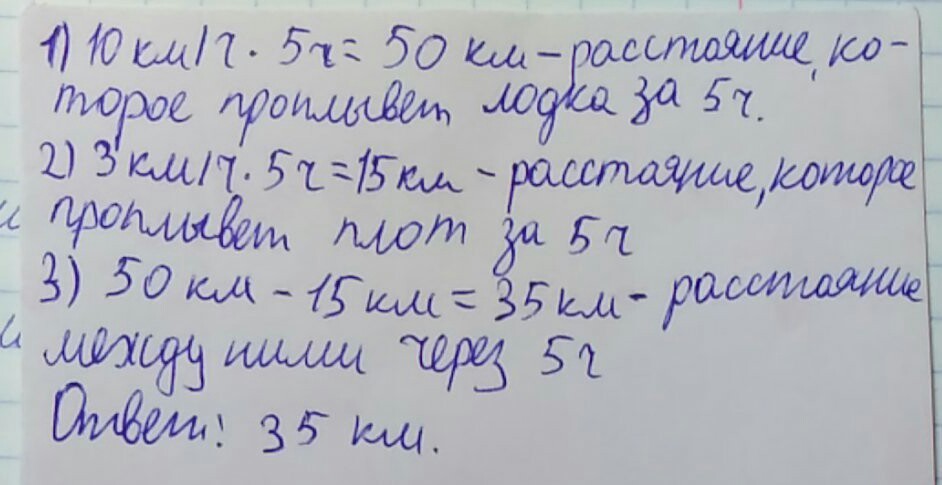 1) 10 км/ч · 5ч = 50 км – расстояние, ко-
торое проплывет лодка за 5ч.
2) 3 км/ч · 5 ч = 15 км – расстояние, которое
проплывет плот за 5 ч
3) 50 км – 15 км = 35 км – расстояние
между ними через 5 ч
Ответ: 35 км.